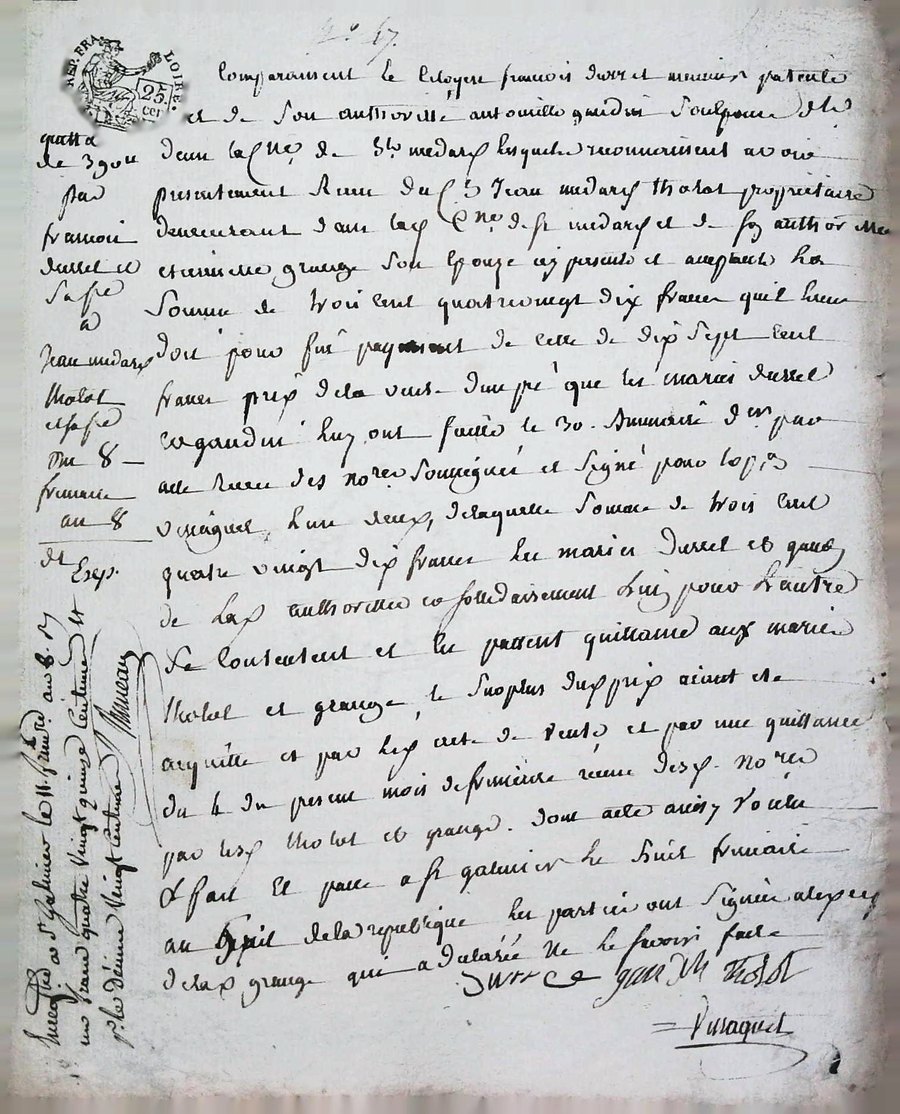 N.º 47.
REP. FRA.
LOIRE.
25
cen
Comparaissent le Citoyen francois durret meunier patenté
et de son authorité antoinette gaudin son épouse
dans la Cne. de St medard lesquels reconnaissent avoir
présentement Recu du C. Jean medard tholot propriétaire
demeurant dans lad Cne. de st medard et de son authorité
grange son Epouze icy présente et acceptante la
Somme de trois Cent quatrevingt dix francs qu'il leur
doit pour fin payement de celle de dix Sept Cent
francs prix de la vente d'un pré que les mariés durret
et gaudin luy ont faitte le 30. brumaire der. par
acte Recu des nores. Soussignés et Signé pour
vissaguet l'un deux, de laquelle Somme de trois Cent
quatre vingt dix francs les mariés durret et gaudin
de lad authorité et sollidairement l'un pour l'autre
Se Contentent et en passent quittance aux mariés
tholot et grange, le Surplus dud prix aiant été
acquitté et par led acte de vente et par une quittance
du 4 du présent mois de frimaire recue desd. nores
par lesd tholot et grange. dont acte ainsy voulu
& fait Et passé a st galmier le huit frimaire
an huit de la republique les parties ont Signé
de lad grange qui a declaré ne le savoir faire
durret gaudin tholot
Vissaguet
quitta
de 390 ll
par
francois
durret et
Sa fe
a
Jean medard
tholot
et sa fe
Du 8
frimaire
an 8
Exp.
Enregistré a St Galmier le 11 frimre. an 8. Rº
un franc quatre vingt quinze Centimes
pr. le décime Vingt Centimes